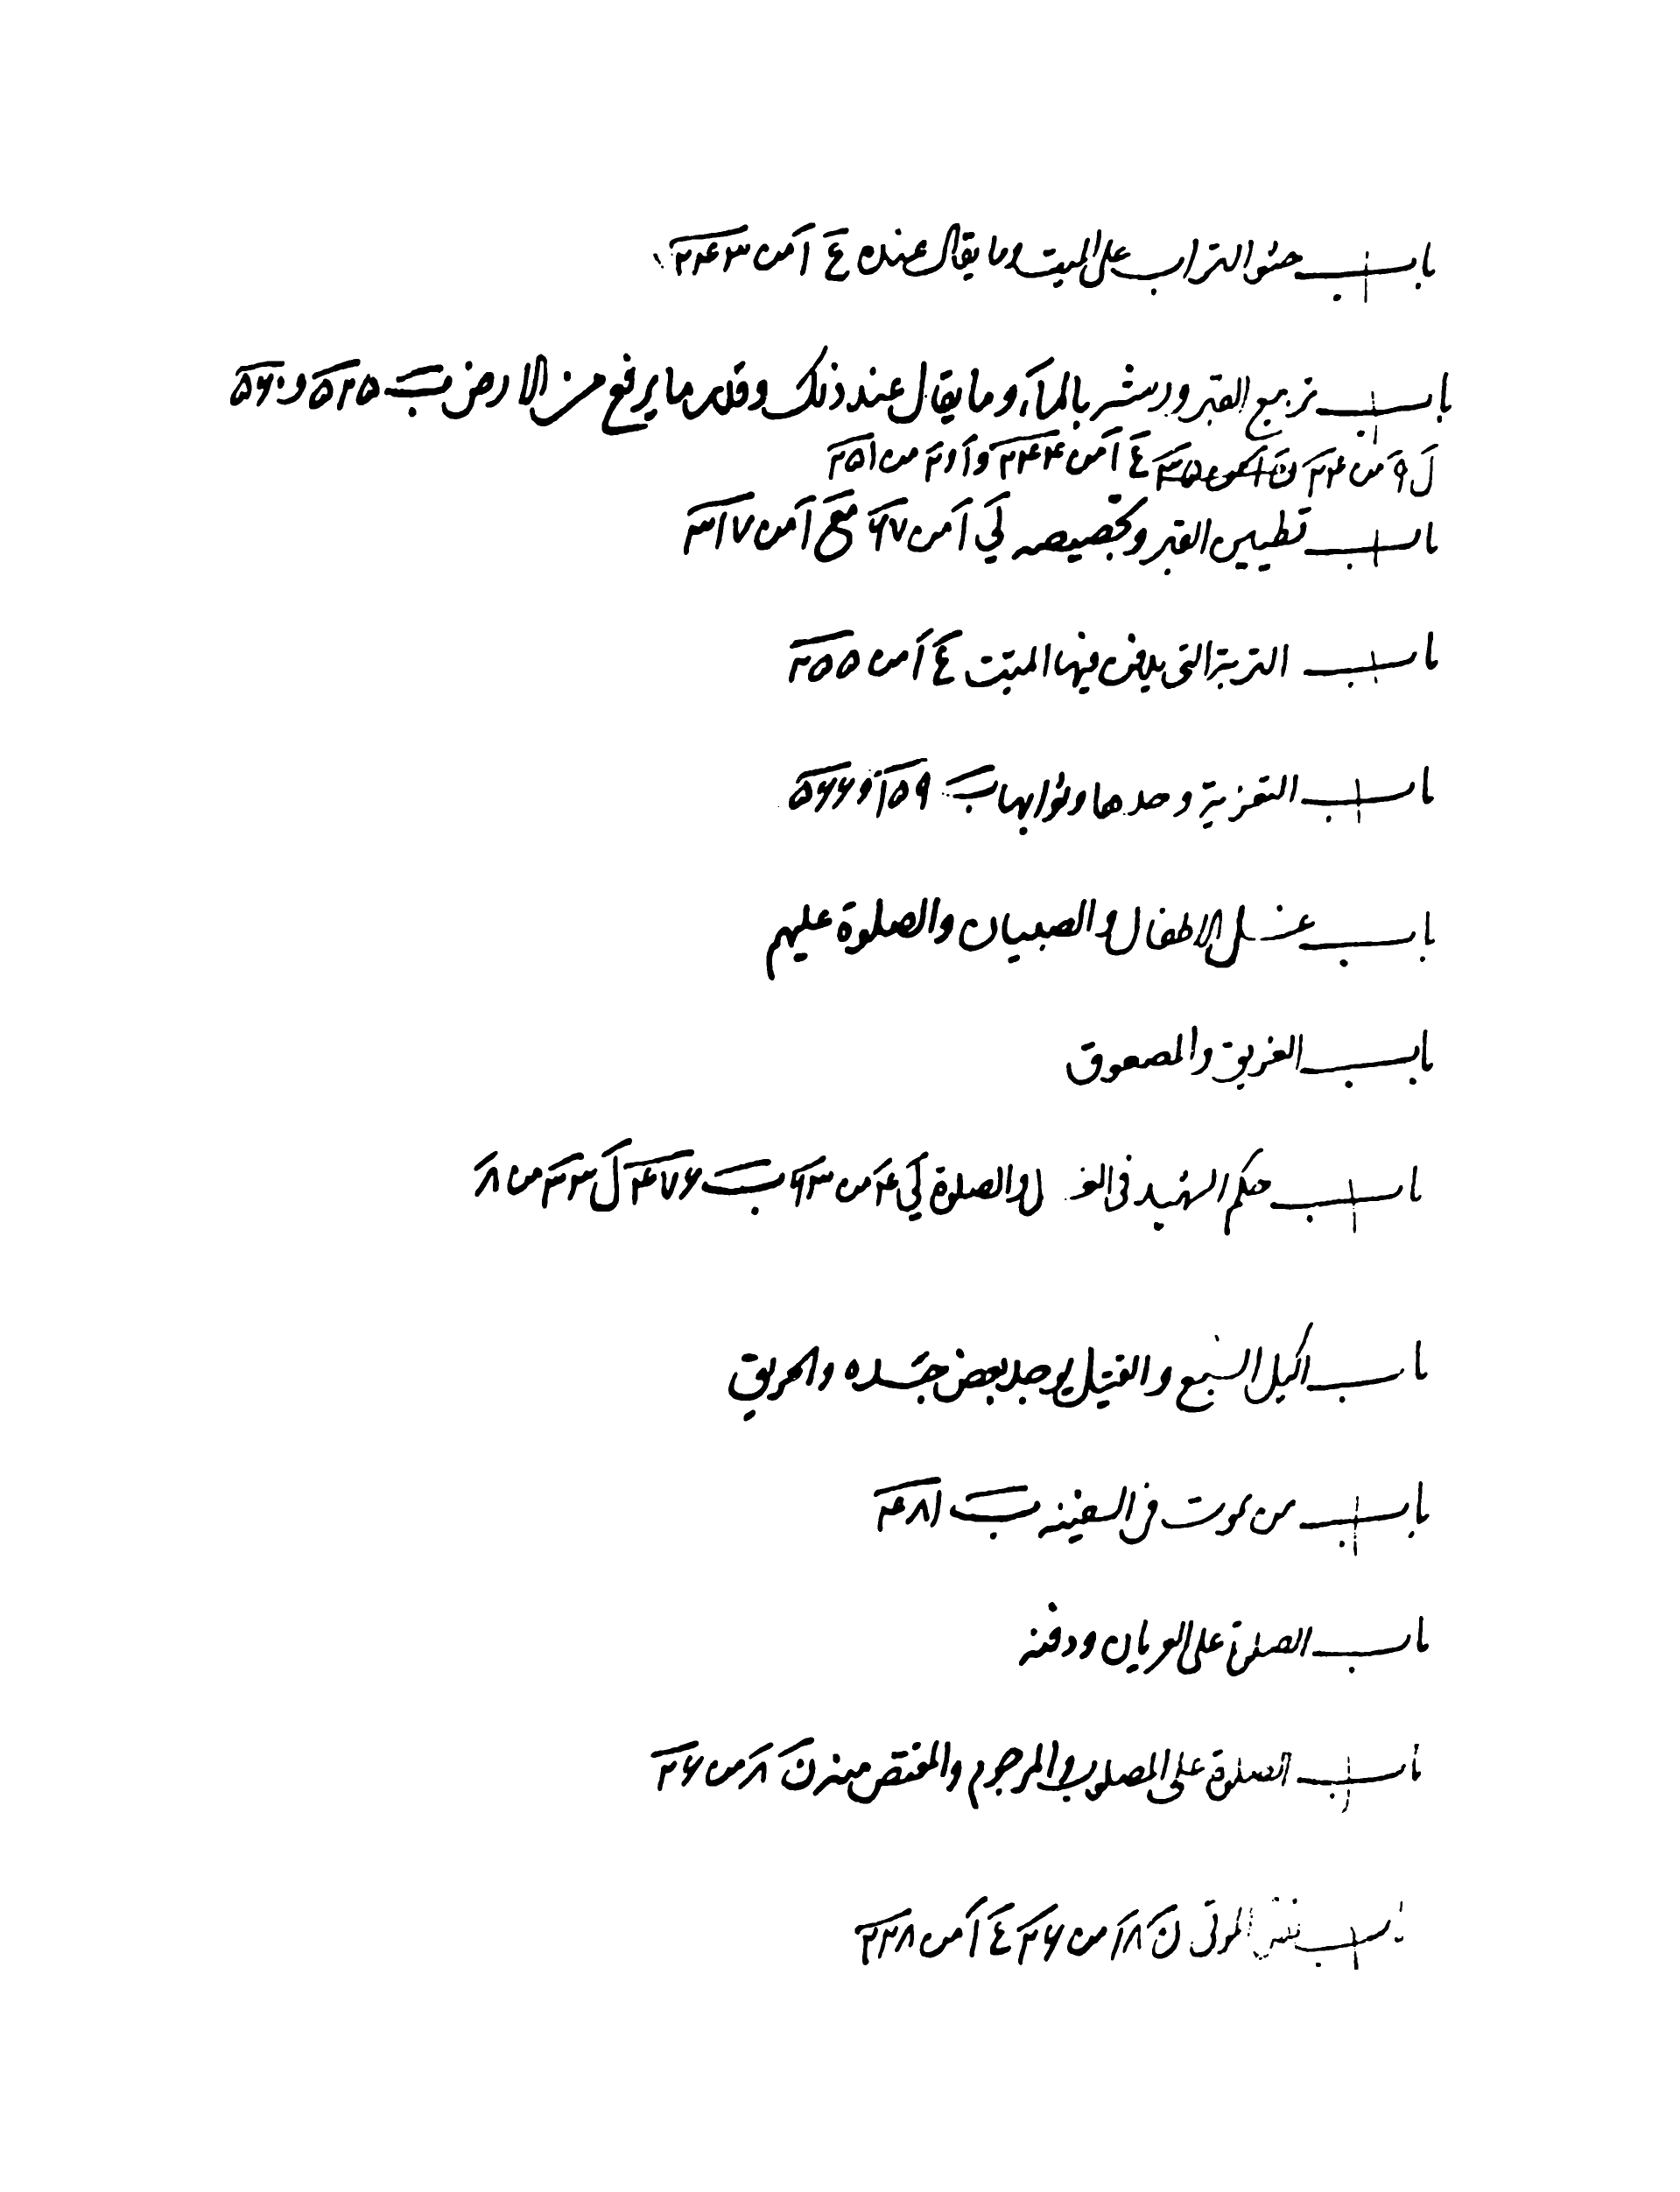 باب حثو التراب على الميت وما يقال عنده ع ١ من ٢٤٣
باب تربيع القبر ورشه بالمآء وما يقال عند ذلك وقدر ما يرفع من الارض ب ٥٢٥ و ٥٦٠
ل ٩ من ٢٤ ع ١ من ٢٤٤ و ١ و ٢ من ٢٥١
باب تطيين القبر وتجصيصه لي ١ من ٦٧ مع ١ من ٣١٧
باب التربة التى يدفن فيها الميّت ع ١ من ٢٥٥
باب التعزية وحدها وثوابها ب ١٥٩ و ٥٦٦
باب غسل الاطفال والصبيان والصلوة عليهم
باب الغريق والمصعوق
باب حكم الشهيد فى الغـ ل والصلوة لي ٤ من ٦٣ ب ٤٧٦ ل ٣٣ من ٨
باب اكيل السّبع والقتيل يوجد بعض جَسده والحريق
باب من يموت فى السفينه ب ٤٨١
باب الصلوة على العريان ودفنه
باب الصلوة على المصلوب والمرجوم والمقتص منه ن ٨ من ٢٦
باب الموتى ن ١٨ من ٢٦ ع ١ من ٢٣٨